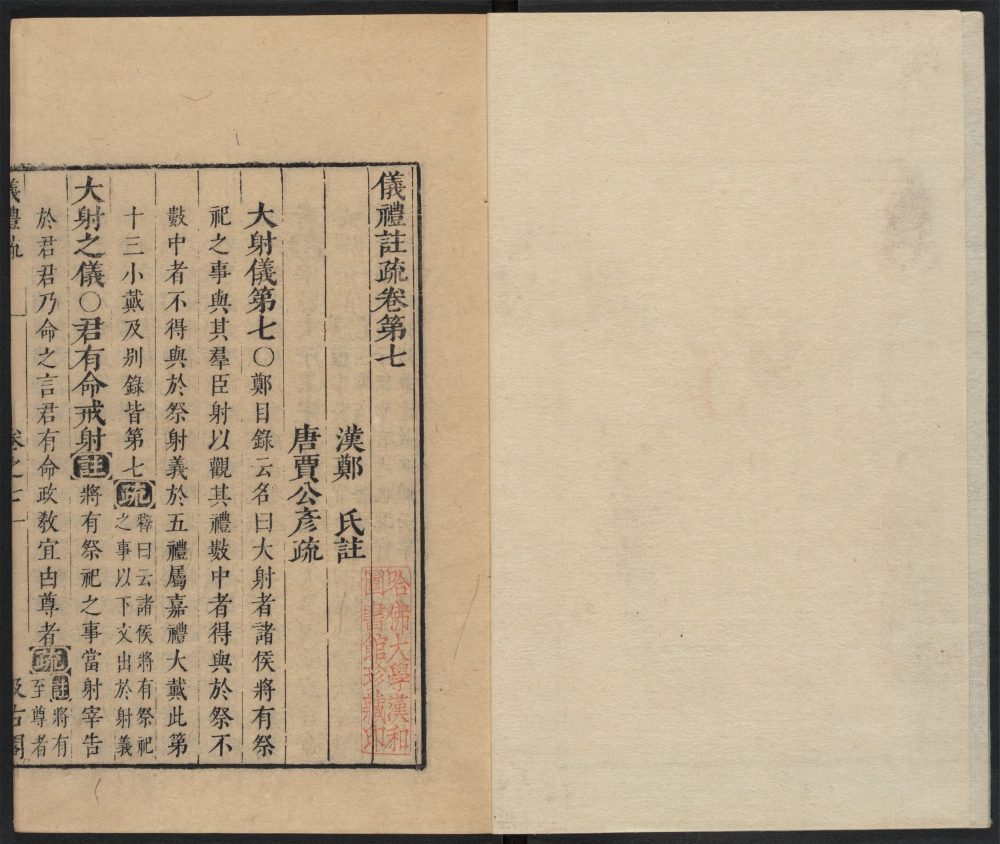 儀禮註疏卷第七
漢鄭 氏註
唐賈公彥疏
大射儀第七○鄭目錄云名曰大射者諸侯將有祭
祀之事與其羣臣射以觀其禮數中者得與於祭不
數中者不得與於祭射義於五禮屬嘉禮大戴此第
十三小戴及別錄皆第七疏釋曰云諸侯將有祭祀
之事以下文出於射義
大射之儀○君有命戒射註將有祭祀之事當射宰告
於君君乃命之言君有命政教宜由尊者疏註將有
至尊者
儀禮疏 卷之七 一 汲古閣
哈佛大學漢和
圖書館珍藏印